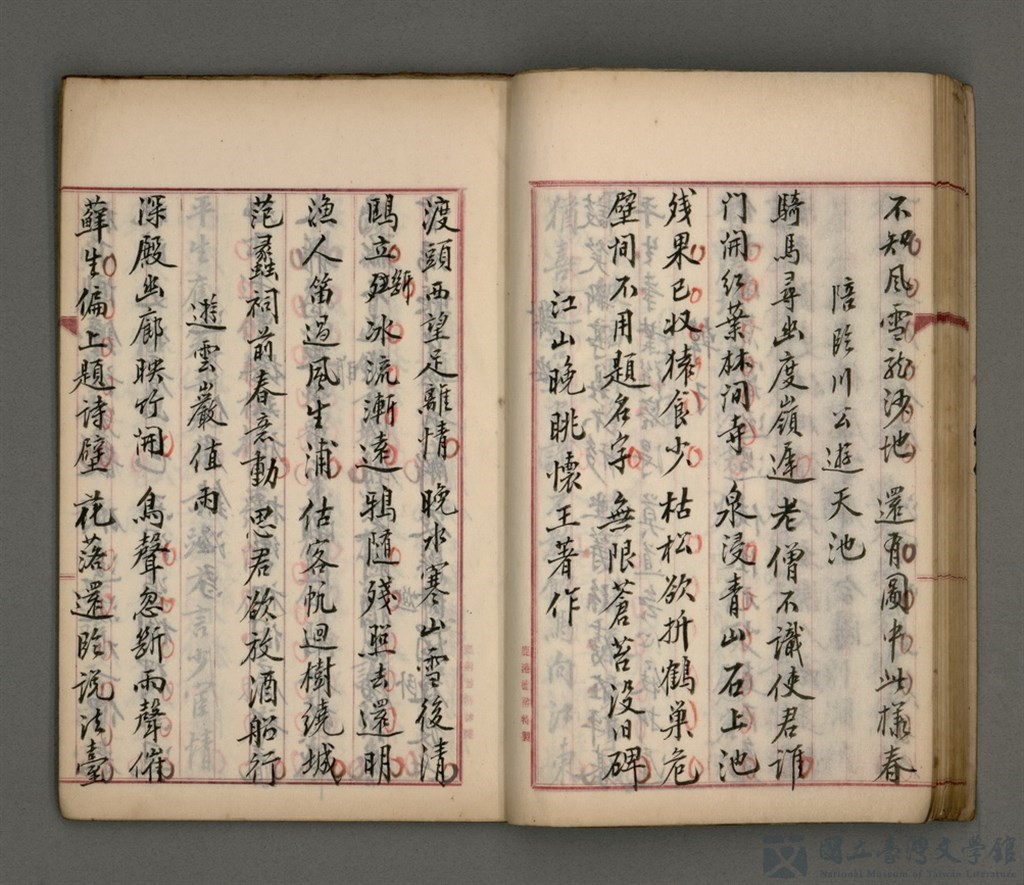 不知風雪龍沙地　還有圖中此樣春
陪臨川公遊天池
騎馬尋幽度嶺遲　老僧不識使君誰
门開红葉林间寺　泉浸青山石上池
残果已収猿食少　枯松欲折鶴巢危
壁间不用題名字　無限蒼苔没旧碑
江山晚眺懷王著作
渡頭西望足離情　晚水寒山雪後清
鴎立斷冰流漸遠　鴉隨殘照去還明
渔人笛過風生浦　估客帆迴樹繞城
范蠡祠前春意動　思君欲放酒船行
遊雲巖值雨
深殿幽廊映竹開　鳥聲忽斷雨聲催
蘚生偏上題诗壁　花落還臨说法臺
國立臺灣文學館
National Museum of Taiwan Literature